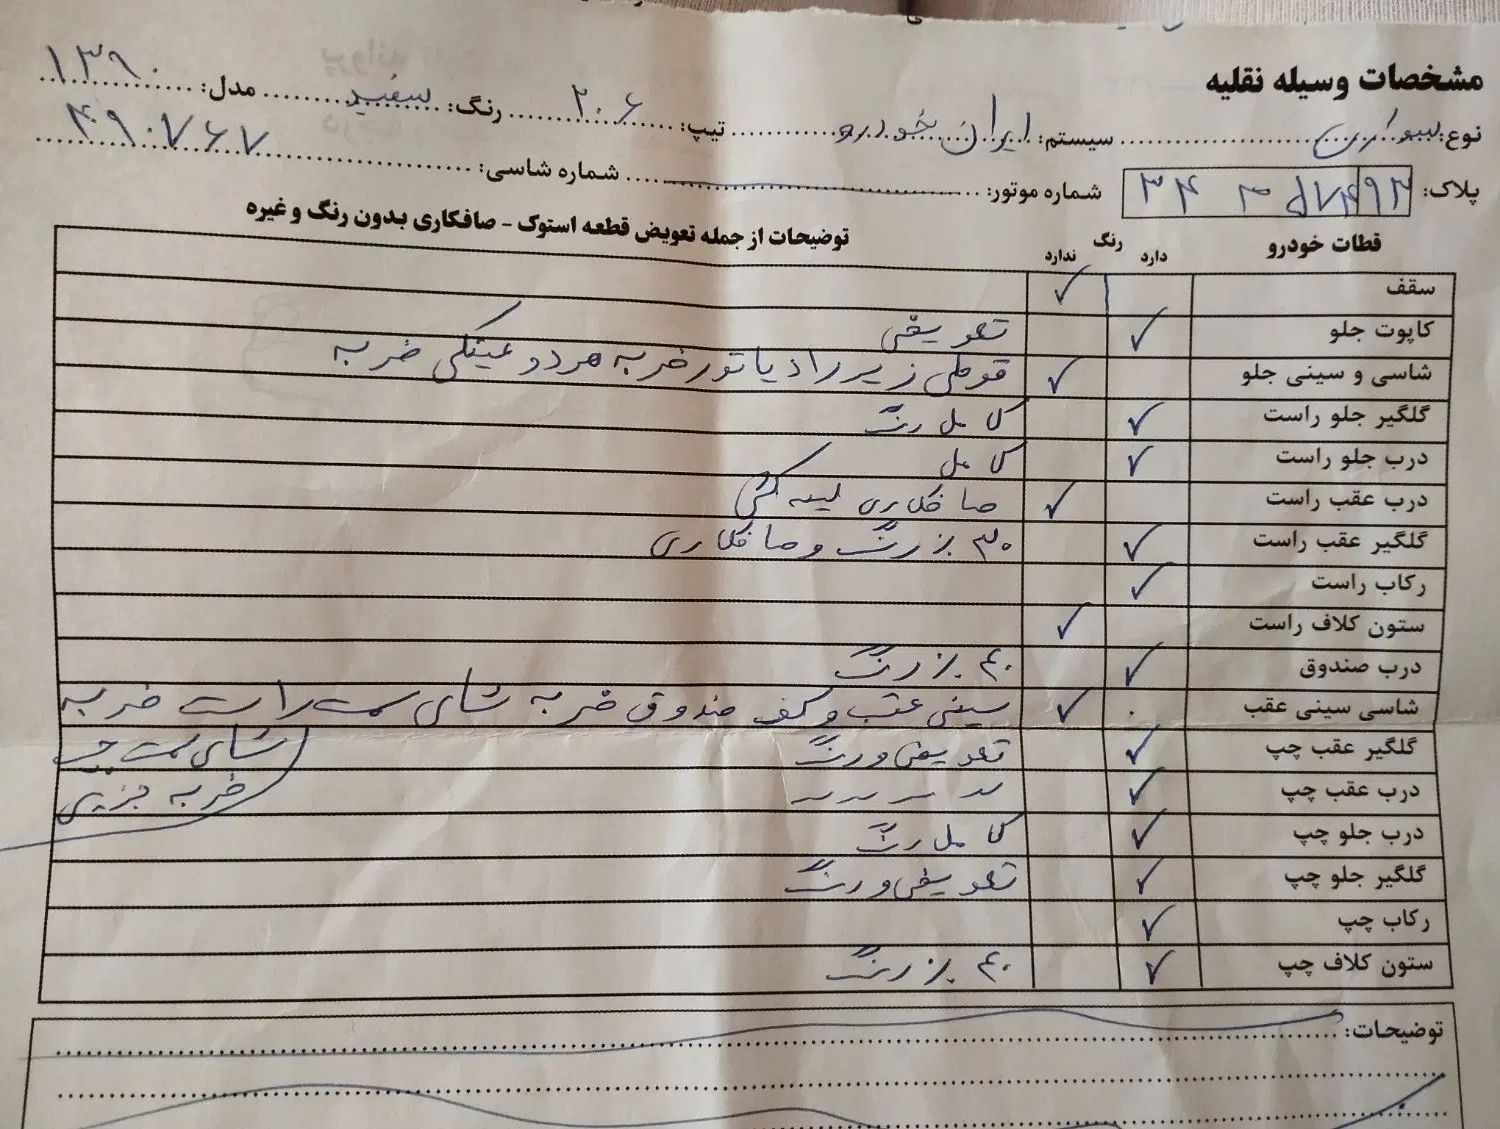 مشخصات وسیله نقلیه
نوع: سواری سیستم: ایران خودرو تیپ: ۲۰۶ رنگ: سفید مدل: ۱۳۹۰
پلاک: شماره موتور: شماره شاسی: ۴۹۰۷۶۷
قطات خودرو رنگ دارد ندارد توضیحات از جمله تعویض قطعه استوک - صافکاری بدون رنگ و غیره
سقف ✓
کاپوت جلو ✓ تعویضی
شاسی و سینی جلو ✓ قوطی زیر رادیاتور ضربه هر دو عینکی ضربه
گلگیر جلو راست ✓ کامل رنگ
درب جلو راست ✓ کامل
درب عقب راست ✓ صافکاری لیسه کشی
گلگیر عقب راست ✓ ۳۰٪ رنگ و صافکاری
رکاب راست ✓
ستون کلاف راست ✓
درب صندوق ✓ ۴۰٪ رنگ
شاسی سینی عقب ✓ سینی عقب و کف صندوق ضربه شاسی سمت راست ضربه
شاسی سمت چپ
گلگیر عقب چپ ✓ تعویض و رنگ
ضربه جزیی
درب عقب چپ ✓
درب جلو چپ ✓ کامل رنگ
گلگیر جلو چپ ✓ تعویض و رنگ
رکاب چپ ✓
ستون کلاف چپ ✓ ۴۰٪ رنگ
توضیحات: